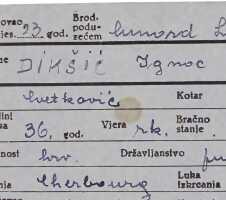 ovao
jes. 23. god. Brod. podu- zećem Cunard L
me DIKŠIĆ Ignac
Cvetković Kotar
ini
sa 36, god. Vjera rk. Bračno stanje
nost hrv. Državljanstvo
nja Cherbourg Luka Iskrcanja